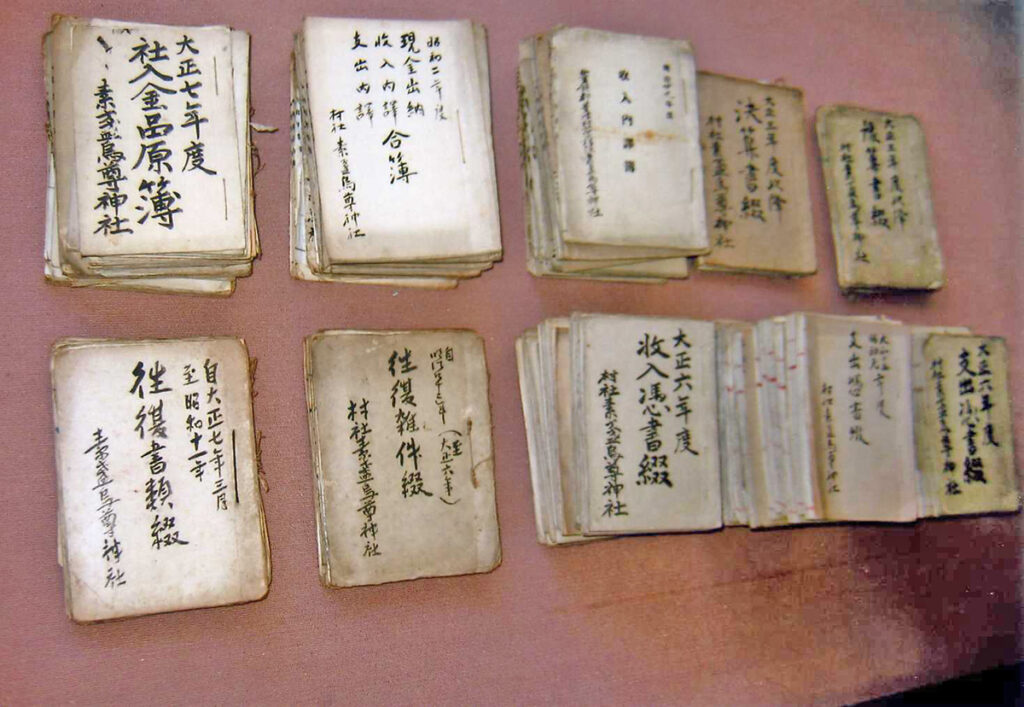 大正七年度
社入金品原簿
素盞嗚尊神社
昭和二年度
現金出納
收入内譯
支出内譯
合簿
村社 素盞嗚尊神社
收入内譯簿
大正三年度以降
決算書綴
大正三年度以降
算書綴
自大正七年三月
至昭和十一年
往復書類綴
素盞嗚尊神社
自
至大正六年
往復雜件綴
村社素盞嗚尊神社
大正六年度
收入憑書綴
村社素盞嗚尊神社
支出憑書綴
大正六年度
支出憑書綴